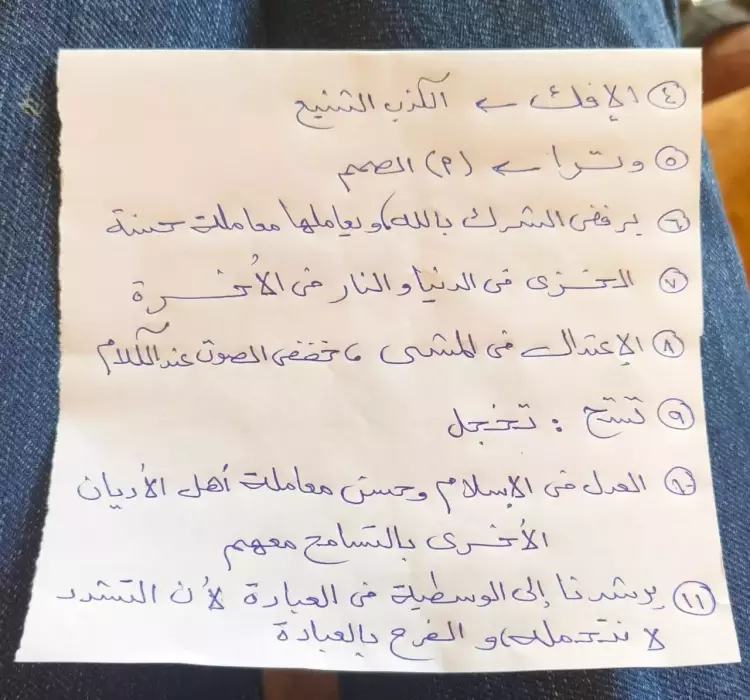 ٤ الإفك ← الكذب الشنيع
٥ وقرا ← (م) الصمم
٦ يرفض الشرك بالله، ويعاملها معاملة حسنة
٧ الخزى فى الدنيا والنار فى الأخرة
٨ الإعتدال فى المشى، خفض الصوت عند الكلام
٩ : تخجل
١٠ العدل فى الإسلام وحسن معاملة أهل الأديان
الأخرى بالتسامح معهم
١١ يرشدنا إلى الوسطية فى العبادة لأن التشدد
لا نتحمله، و الفرح بالعبادة